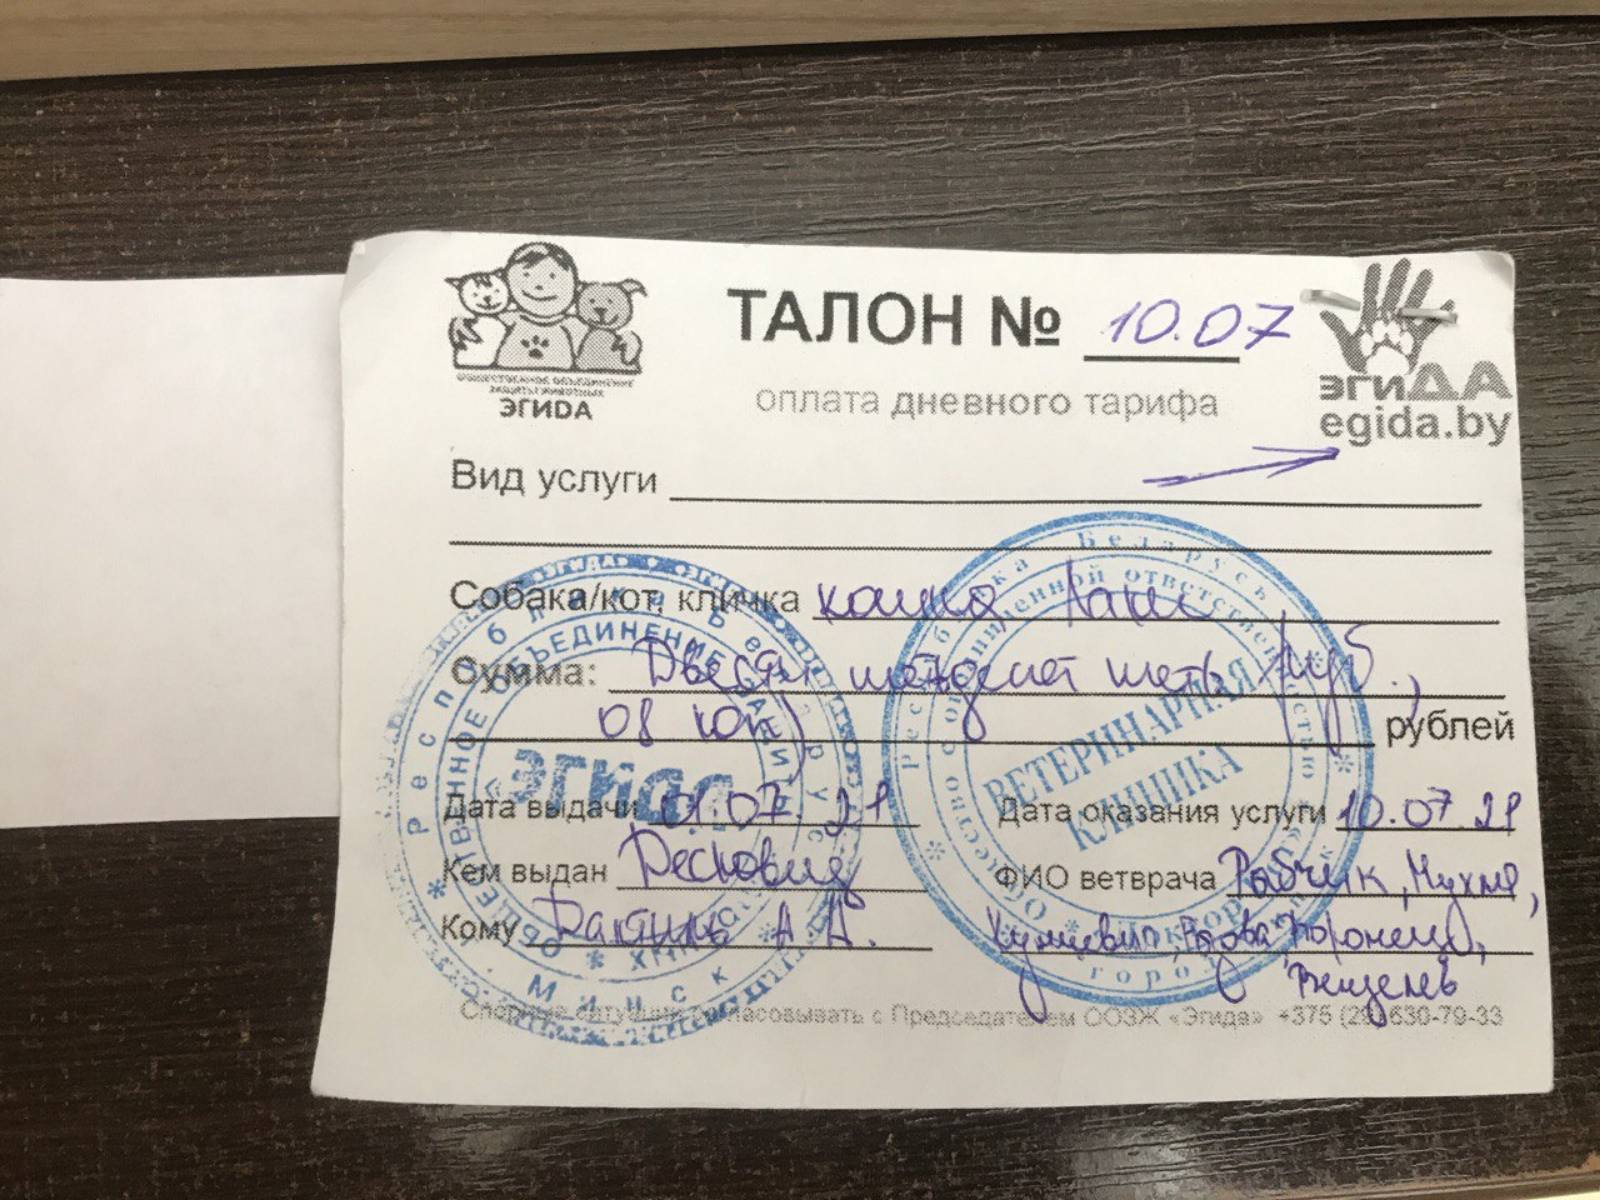 ТАЛОН № 10.07
ОБЩЕСТВЕННОЕ ОБЪЕДИНЕНИЕ
ЗАЩИТЫ ЖИВОТНЫХ
ЭГИДА
оплата дневного тарифа
эгиДА
egida.by
Вид услуги
Собака/кот, кличка кошка
Сумма: Двести шестьдесят шесть руб.,
08 коп) рублей
Дата выдачи 01.07.21 Дата оказания услуги 10.07.21
Кем выдан ФИО ветврача Рабчик,
Кому А.
Спорные ситуации согласовывать с Председателем ООЗЖ «Эгида» +375 (29) 630-79-33
Республика Беларусь
ОБЩЕСТВЕННОЕ ОБЪЕДИНЕНИЕ ЗАЩИТЫ
«ЭГИДА»
Минск
Республика Беларусь
Общество с ограниченной ответственностью
ВЕТЕРИНАРНАЯ
КЛИНИКА